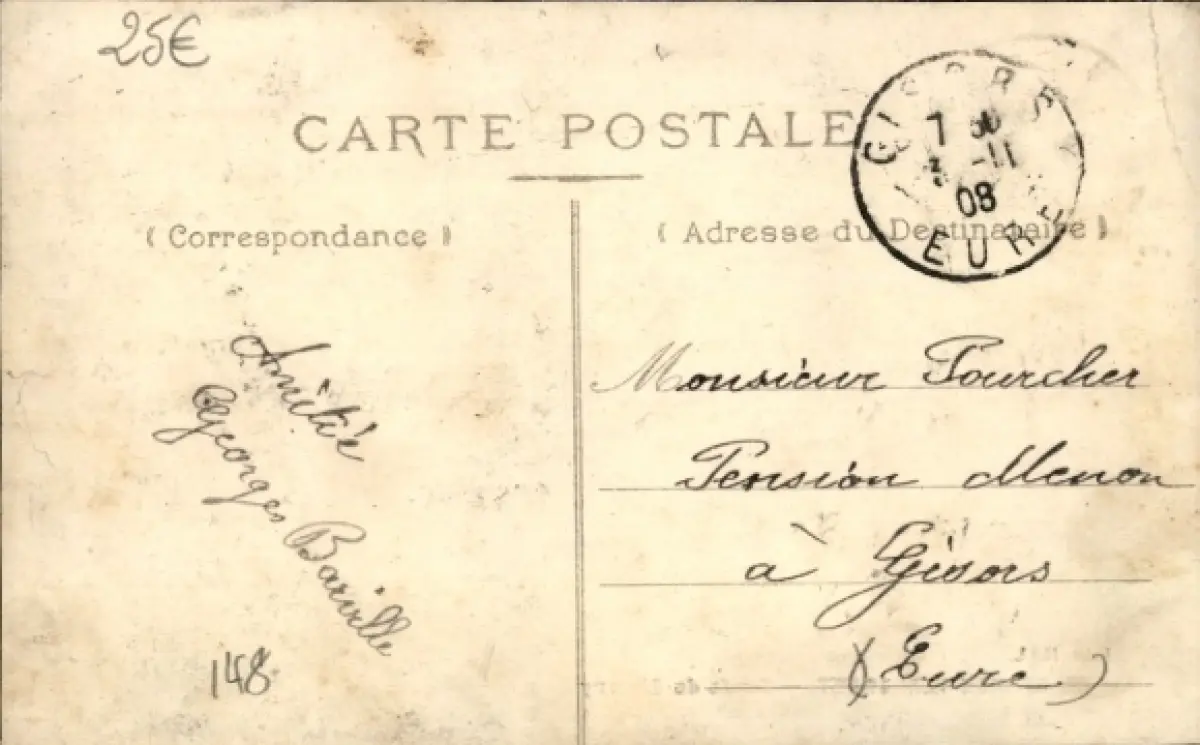 25€
CARTE POSTALE
( Correspondance )
( Adresse du Destinataire )
GISORS
7 30
-11
08
EURE
Amitié
Georges Barville
148
Monsieur Pourcher
Pension Menon
à Gisors
(Eure)